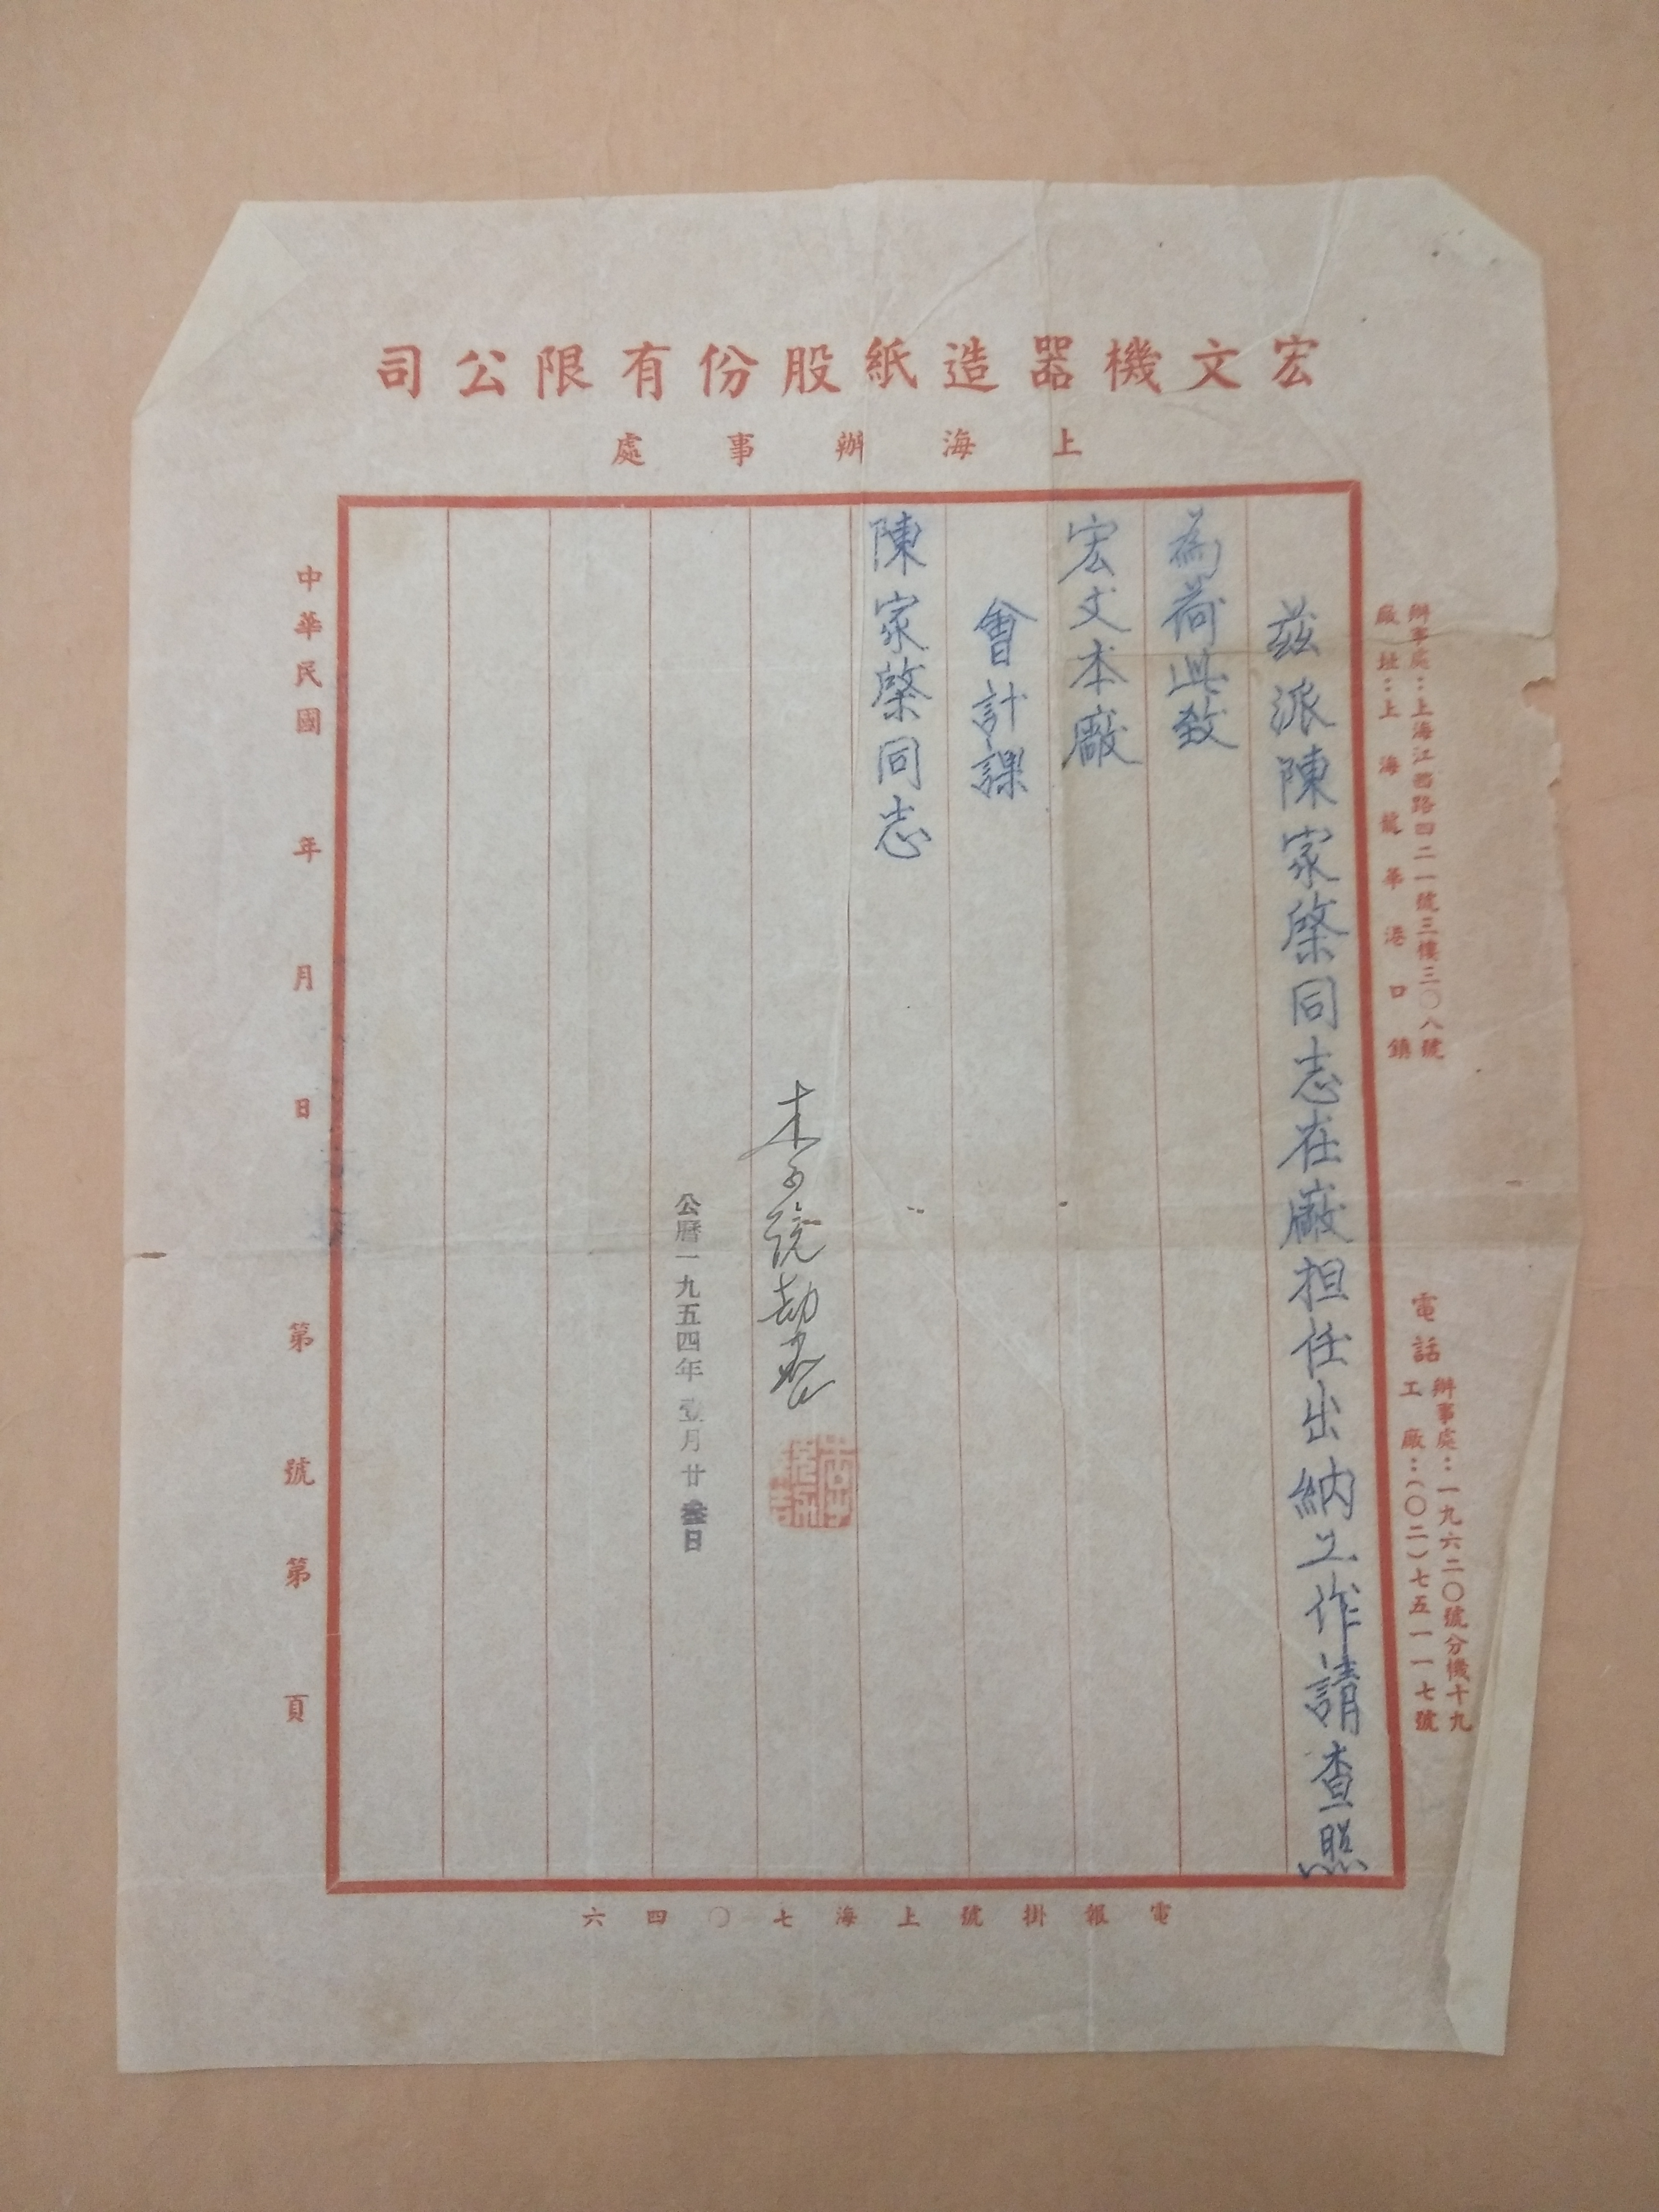 宏文機器造紙股份有限公司
上海辦事處
辦事處：上海江西路四二一號三樓三〇八號
廠址：上海龍華港口鎮
電話
辦事處：一九六二〇號分機十九
工廠：(〇二)七五一一七號
茲派陳家棨同志在廠担任出納工作請查照
為荷此致
宏文本廠
會計課
陳家棨同志
公曆一九五四年壹月廿叁日
中華民國 年 月 日 第 號 第 頁
電報掛號上海七〇四六